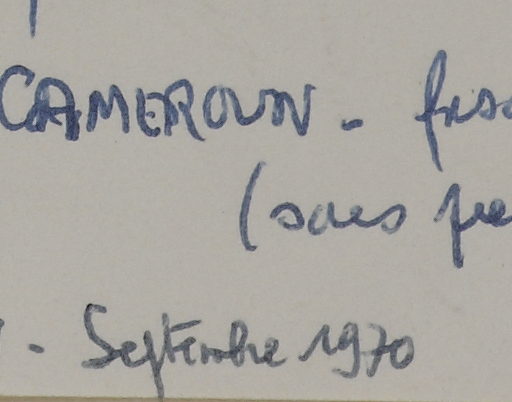 CAMEROUN -
(sans
- Septembre 1970